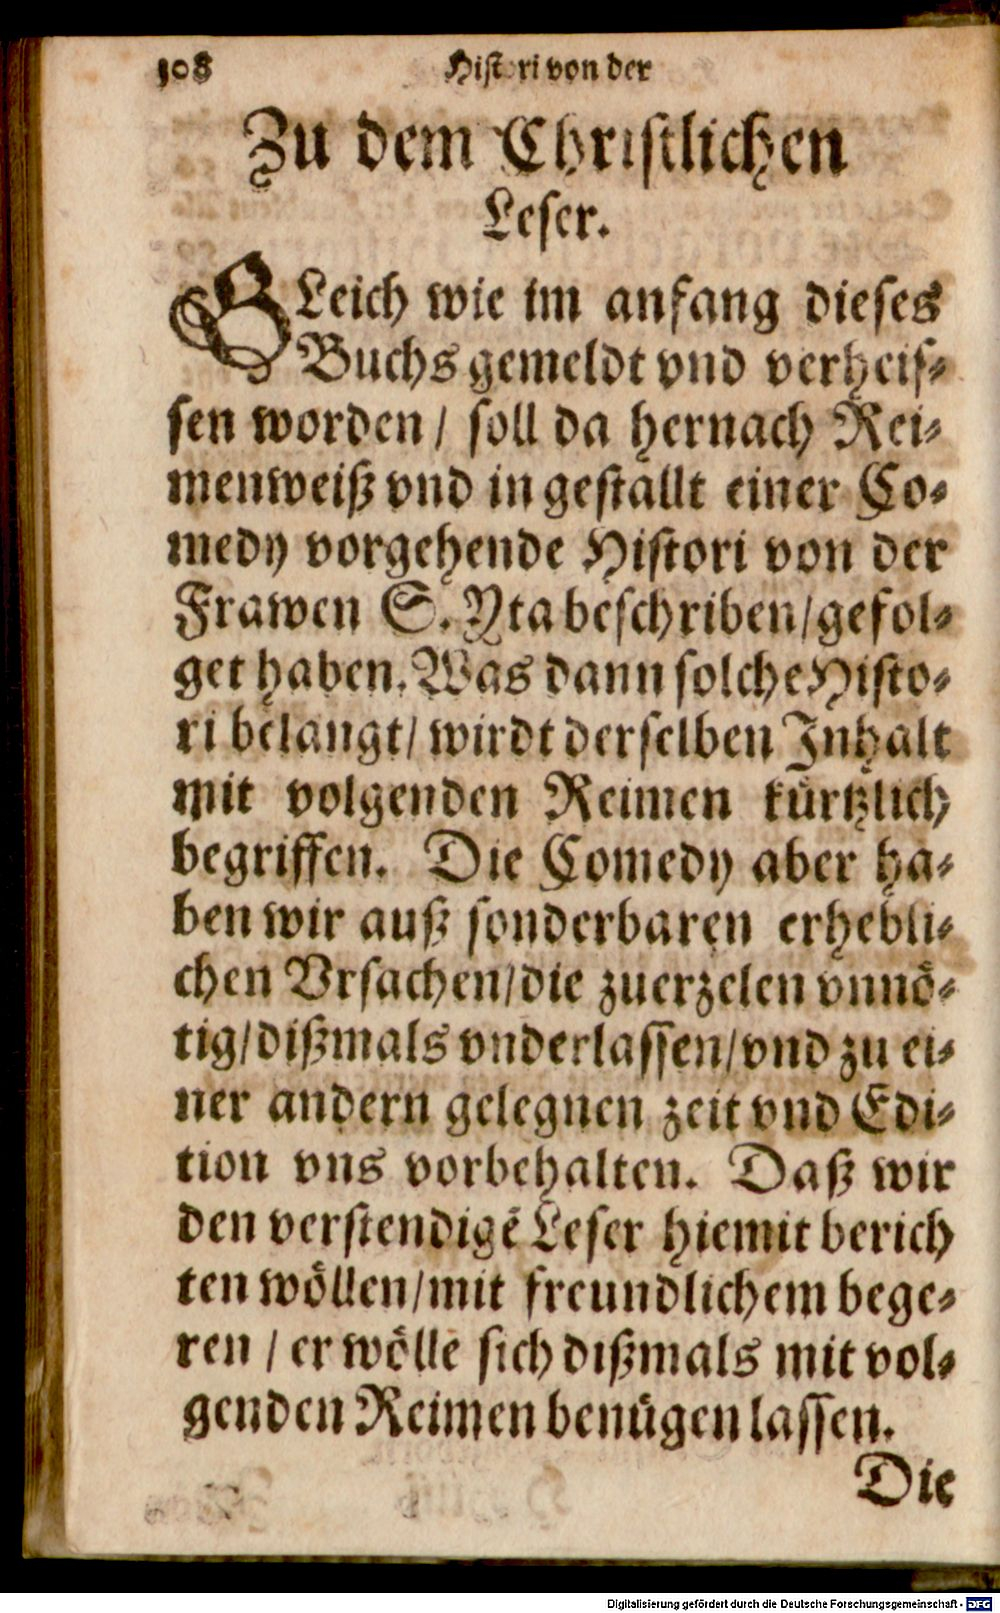 108 Histori von der
Zu dem Christlichen
Leser.
GLeich wie im anfang dieses
Buchs gemeldt vnd verheis-
sen worden / soll da hernach Rei-
menweiß vnd in gestallt einer Co-
medy vorgehende Histori von der
Frawen S. Yta beschriben / gefol-
get haben. Was dann solche Histo-
ri belangt / wirdt derselben Inhalt
mit volgenden Reimen kürtzlich
begriffen. Die Comedy aber ha-
ben wir auß sonderbaren erhebli-
chen Vrsachen / die zuerzelen vnnö-
tig / dißmals vnderlassen / vnd zu ei-
ner andern gelegnen zeit vnd Edi-
tion vns vorbehalten. Daß wir
den verstendigē Leser hiemit berich
ten wöllen / mit freundlichem bege-
ren / er wölle sich dißmals mit vol-
genden Reimen benügen lassen.
Die
Digitalisierung gefördert durch die Deutsche Forschungsgemeinschaft - DFG